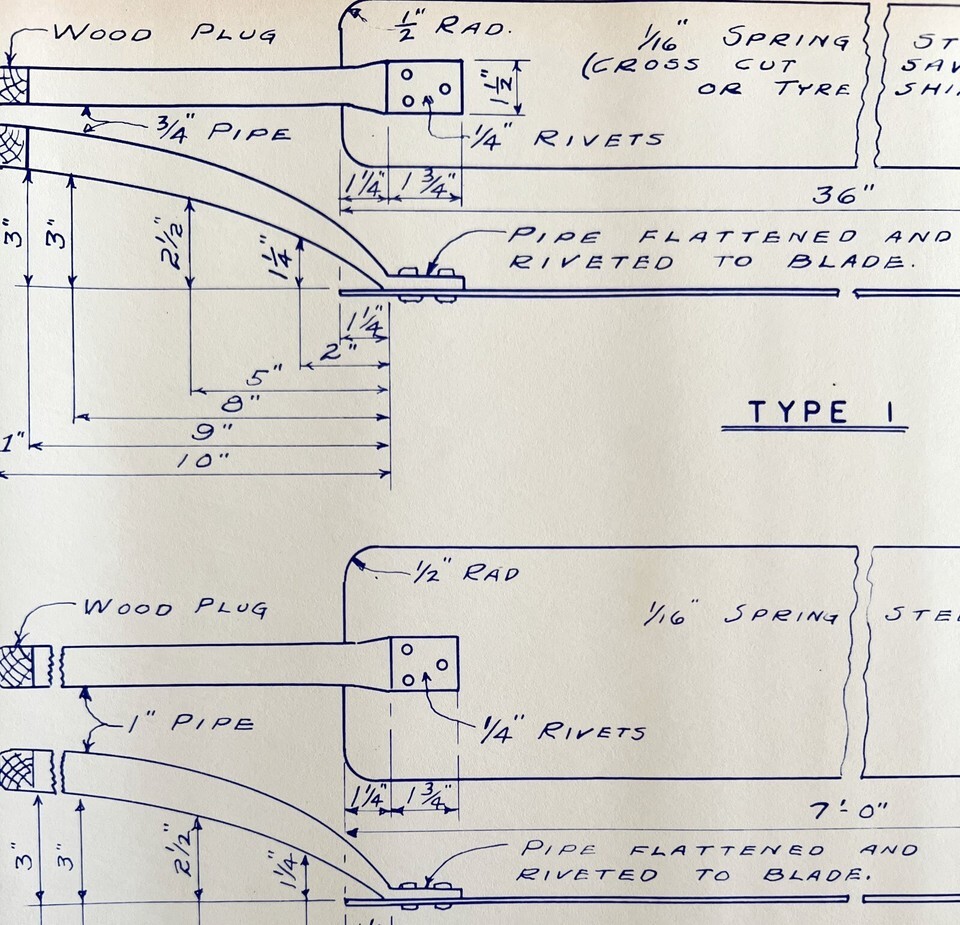 WOOD PLUG
1/2" RAD.
1/16" SPRING ST
(CROSS CUT SAW
OR TYRE SHI
1 1/2"
3/4" PIPE
1/4" RIVETS
1 1/4" 1 3/4"
36"
3" 3" 2 1/2" 1 1/4"
PIPE FLATTENED AND
RIVETED TO BLADE.
1 1/4"
2"
5"
8"
9"
1"
10"
TYPE 1
1/2" RAD
WOOD PLUG
1/16" SPRING STE
1" PIPE
1/4" RIVETS
1 1/4" 1 3/4"
7'-0"
3" 3" 2 1/2" 1 1/4"
PIPE FLATTENED AND
RIVETED TO BLADE.